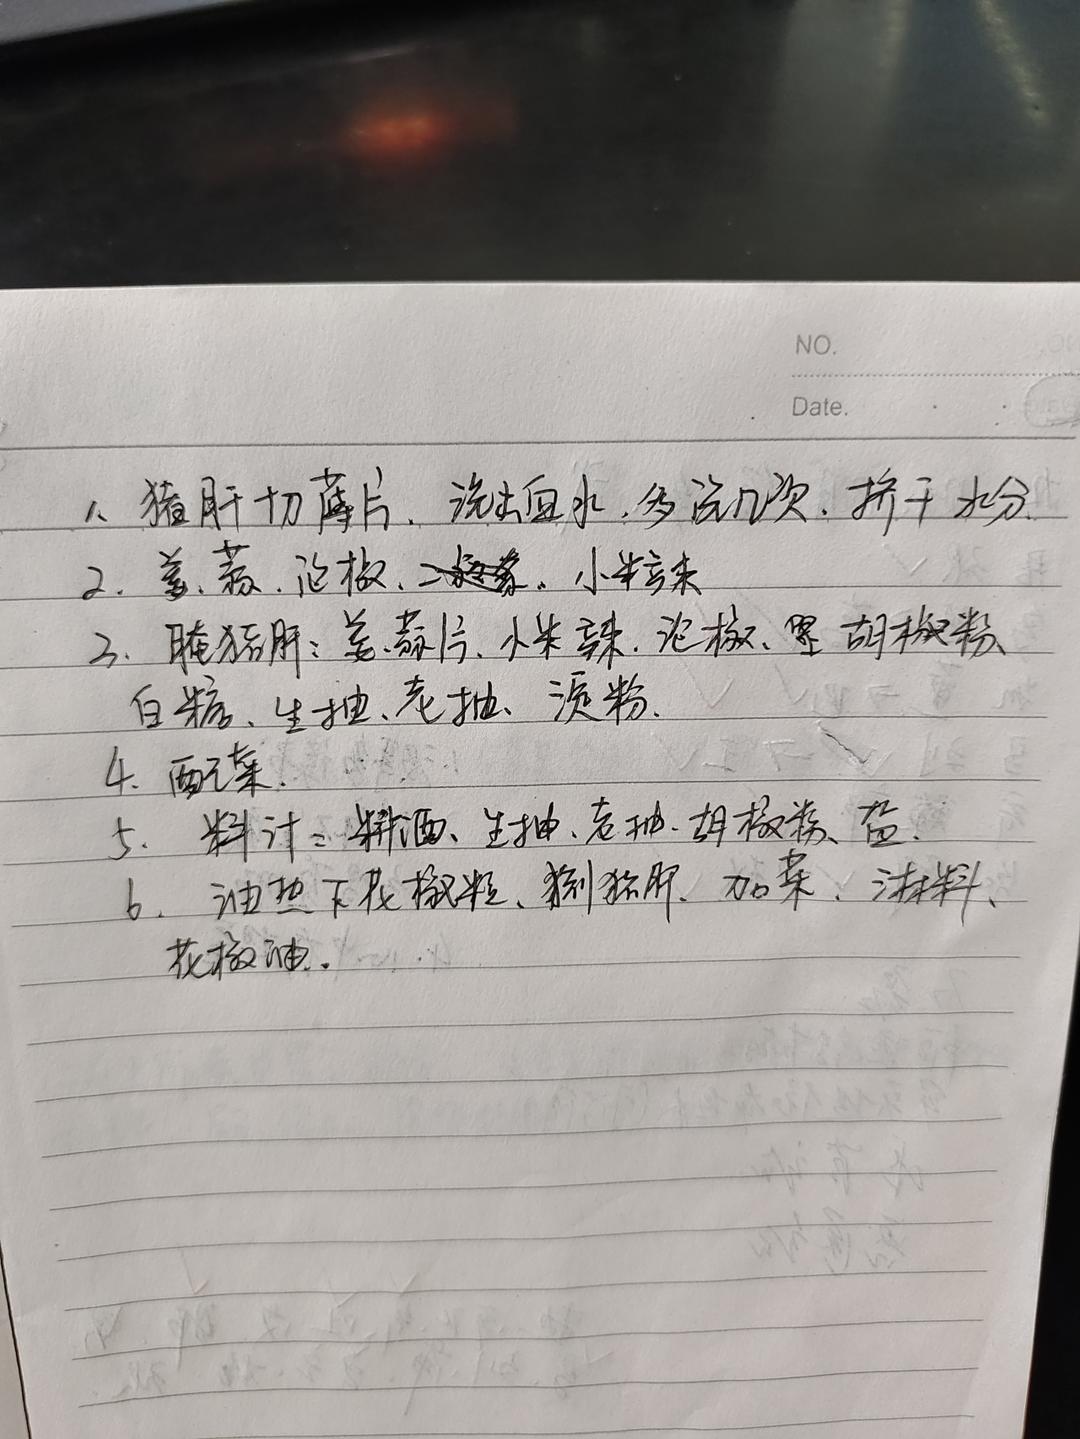 NO.
Date.
1. 猪肝切薄片、洗出血水、多洗几次、挤干水分.
2. 姜、蒜、泡椒、小米辣
3. 腌猪肝：姜、蒜片、小米辣、泡椒、胡椒粉、
白糖、生抽、老抽、淀粉.
4. 配菜.
5. 料汁：料酒、生抽、老抽、胡椒粉、盐.
6. 油热下花椒粒、倒猪肝、加菜、淋料、
花椒油.